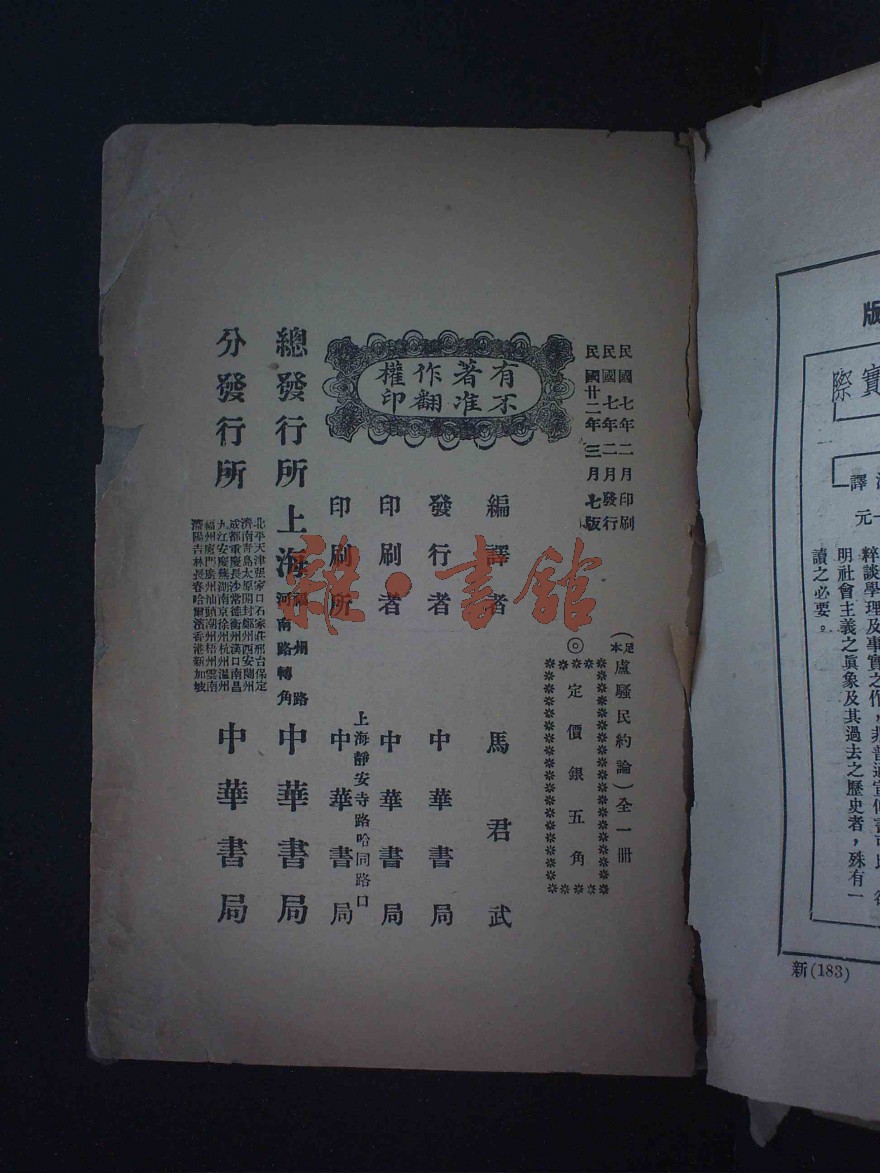 民國七年二月印刷
民國七年二月發行
民國廿二年三月七版
(足本盧騷民約論)全一冊
◎定價銀五角
有著作權
不准翻印
編譯者 馬君武
發行者 中華書局
印刷者 中華書局
上海靜安寺路哈同路口
印刷所 中華書局
總發行所 上海福州路河南路轉角 中華書局
分發行所 中華書局
北平天津張家口石家莊邢台保定
濟南青島太原開封鄭州西安蘭州
成都重慶長沙常德衡州漢口南昌
九江安慶蕪湖南京徐州杭州溫州
福州廈門廣州汕頭潮州梧州雲南
瀋陽吉林長春哈爾濱香港新加坡
雜·書館
版
實
際
譯
元
粹談學理及事實之作，非普通宣傳書可比
明社會主義之眞象及其過去之歷史者，殊有一
讀之必要。
新(183)